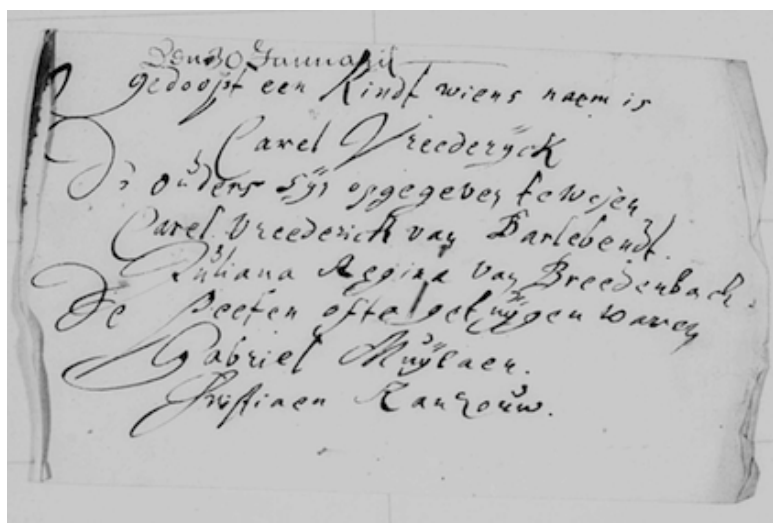 Den 30 Januarij
gedoopt een Kindt wiens naem is
Carel Vreederÿck
De oúders sÿn opgegeven te wesen
Carel Vreederick van Barlebendt.
Júliana Regina van Breedenbach.
De Peeten ofte getúÿgen waren
Gabriel Múÿlaer.
Christiaen Ranzoúw.